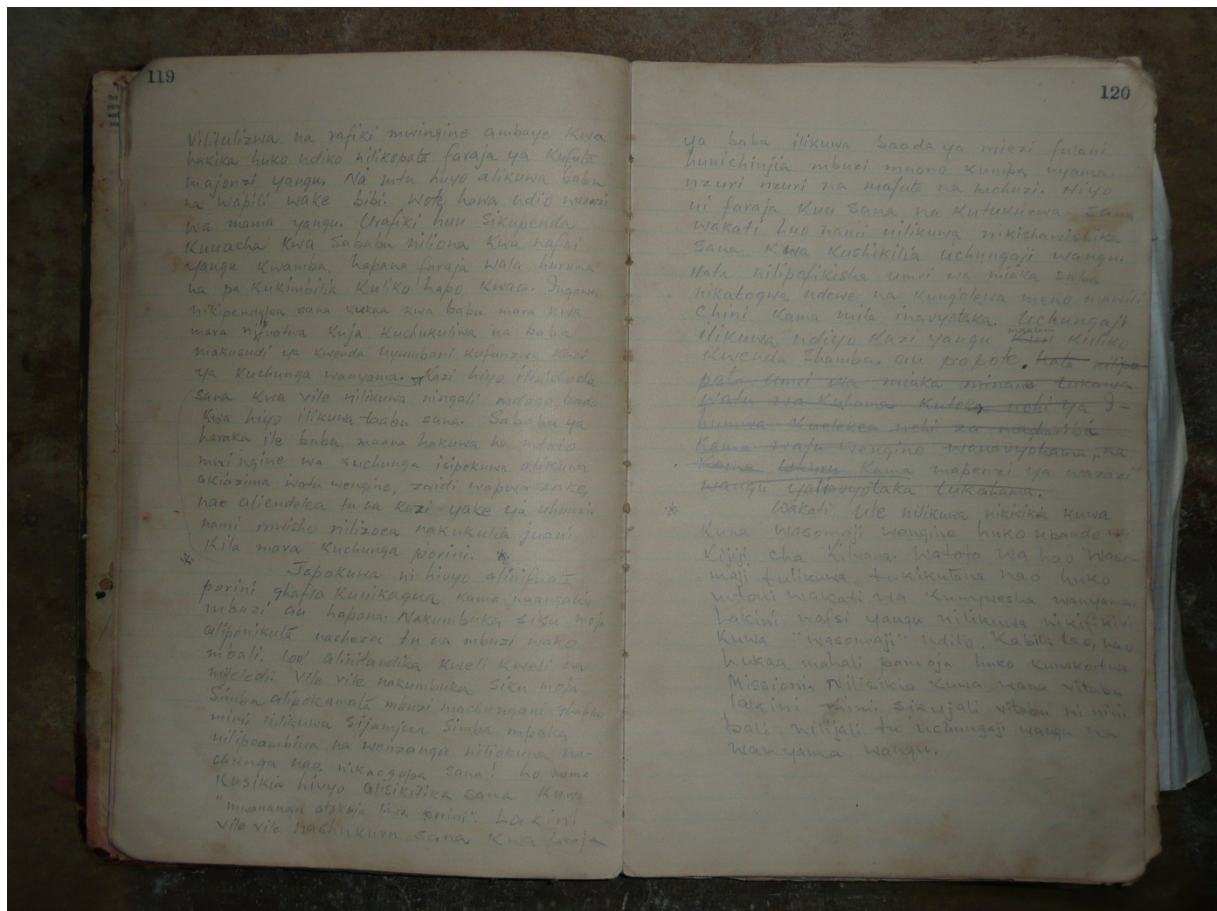 119
Vilitulizwa na rafiki mwingine ambaye kwa
hakika huko ndiko nilikopata faraja ya kufuta
majonzi yangu. Na mtu huyo alikuwa babu
na wapili wake bibi. Wote hawa ndio wazazi
wa mama yangu. Urafiki huu sikupenda
kuuacha kwa sababu niliona kwa nafsi
yangu kwamba hapana faraja wala huruma
na pa kukimbilia kuliko hapo kwao. Ingawa
nilipendelea sana kukaa kwa babu mara kwa
mara nilifuatwa kuja kuchukuliwa na baba
makusudi ya kwenda nyumbani kufunzwa kazi
ya kuchunga wanyama. Kazi hiyo ilinichosha
sana kwa vile nilikuwa ningali mdogo bado
kwa hiyo ilikuwa taabu sana. Sababu ya
haraka ile baba maana hakuwa na mtoto
mwingine wa kuchunga isipokuwa alikuwa
akiazima watu wengine, zaidi wapwa zake,
nae aliendelea tu na kazi yake ya uhunzi.
nami mwisho nilizoea nakukulia juani
kila mara kuchunga porini. *
* Japokuwa ni hivyo alinifuata
porini ghafla kunikagua kama naangalia
mbuzi au hapana. Nakumbuka siku moja
aliponikuta nacheza tu na mbuzi wako
mbali, loo! alinitandika kweli kweli za
mijeledi. Vile vile nakumbuka siku moja
Simba alipokamata mbuzi machungani ghafla
mimi nilikuwa sijamjua Simba mpaka
nilipoambiwa na wenzangu niliokuwa na-
chunga nao, nikaogopa sana! no mama
kusikia hivyo alisikitika sana kuwa
"mwanangu atakuja liwa porini". Lakini
vile vile nashukuru sana kwa faraja
120
ya baba ilikuwa baada ya miezi fulani
hunichinjia mbuzi mnono kumpa nyama
nzuri nzuri na mafuta na mchuzi. Hiyo
ni faraja kuu sana na kutukuzwa sana
wakati huo nami nilikuwa nikishawishika
sana kwa kushikilia uchungaji wangu.
Hata nilipofikisha umri wa miaka saba
nikatogwa ndewe na kung'olewa meno mawili
chini kama mila inavyotaka. Uchungaji
ulikuwa ndiyo kazi yangu kuliko
kwenda shamba au popote. Hata nilipo
pata umri wa miaka minane tukawa
watu wa kuhama kutoka nchi ya I-
kuelekea nchi za magharibi
kama watu wengine wanavyohama, na
kama mapenzi ya wazazi
wangu yalivyotaka tukahama.
* Wakati ule nilikuwa nikisikia kuwa
kuna wasomaji wengine huko upande wa
kijiji cha Kilwana. Watoto wa hao waso-
maji tulikuwa tukikutana nao huko
mtoni wakati wa kunywesha wanyama.
Lakini nafsi yangu nilikuwa nikifikiri
kuwa "wasomaji" ndilo kabila lao, nao
hukaa mahali pamoja huko kunakoitwa
Missioni. Nilisikia kuwa wana vitabu
lakini mimi sikujali vitabu ni nini
bali nilijali tu uchungaji wangu na
wanyama wangu.